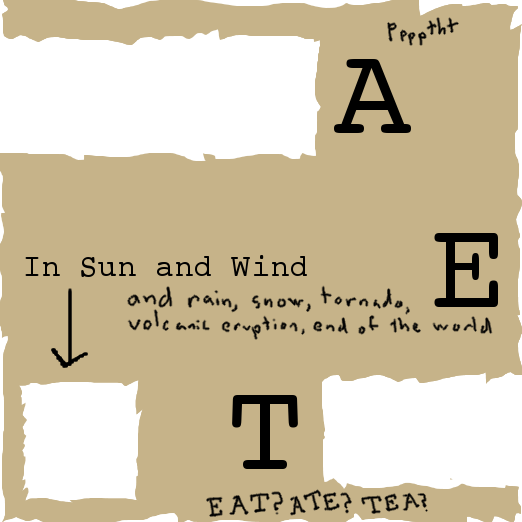 Ppppptht
A
In Sun and Wind
E
and rain, snow, tornado,
volcanic eruption, end of the world
T
EAT? ATE? TEA?